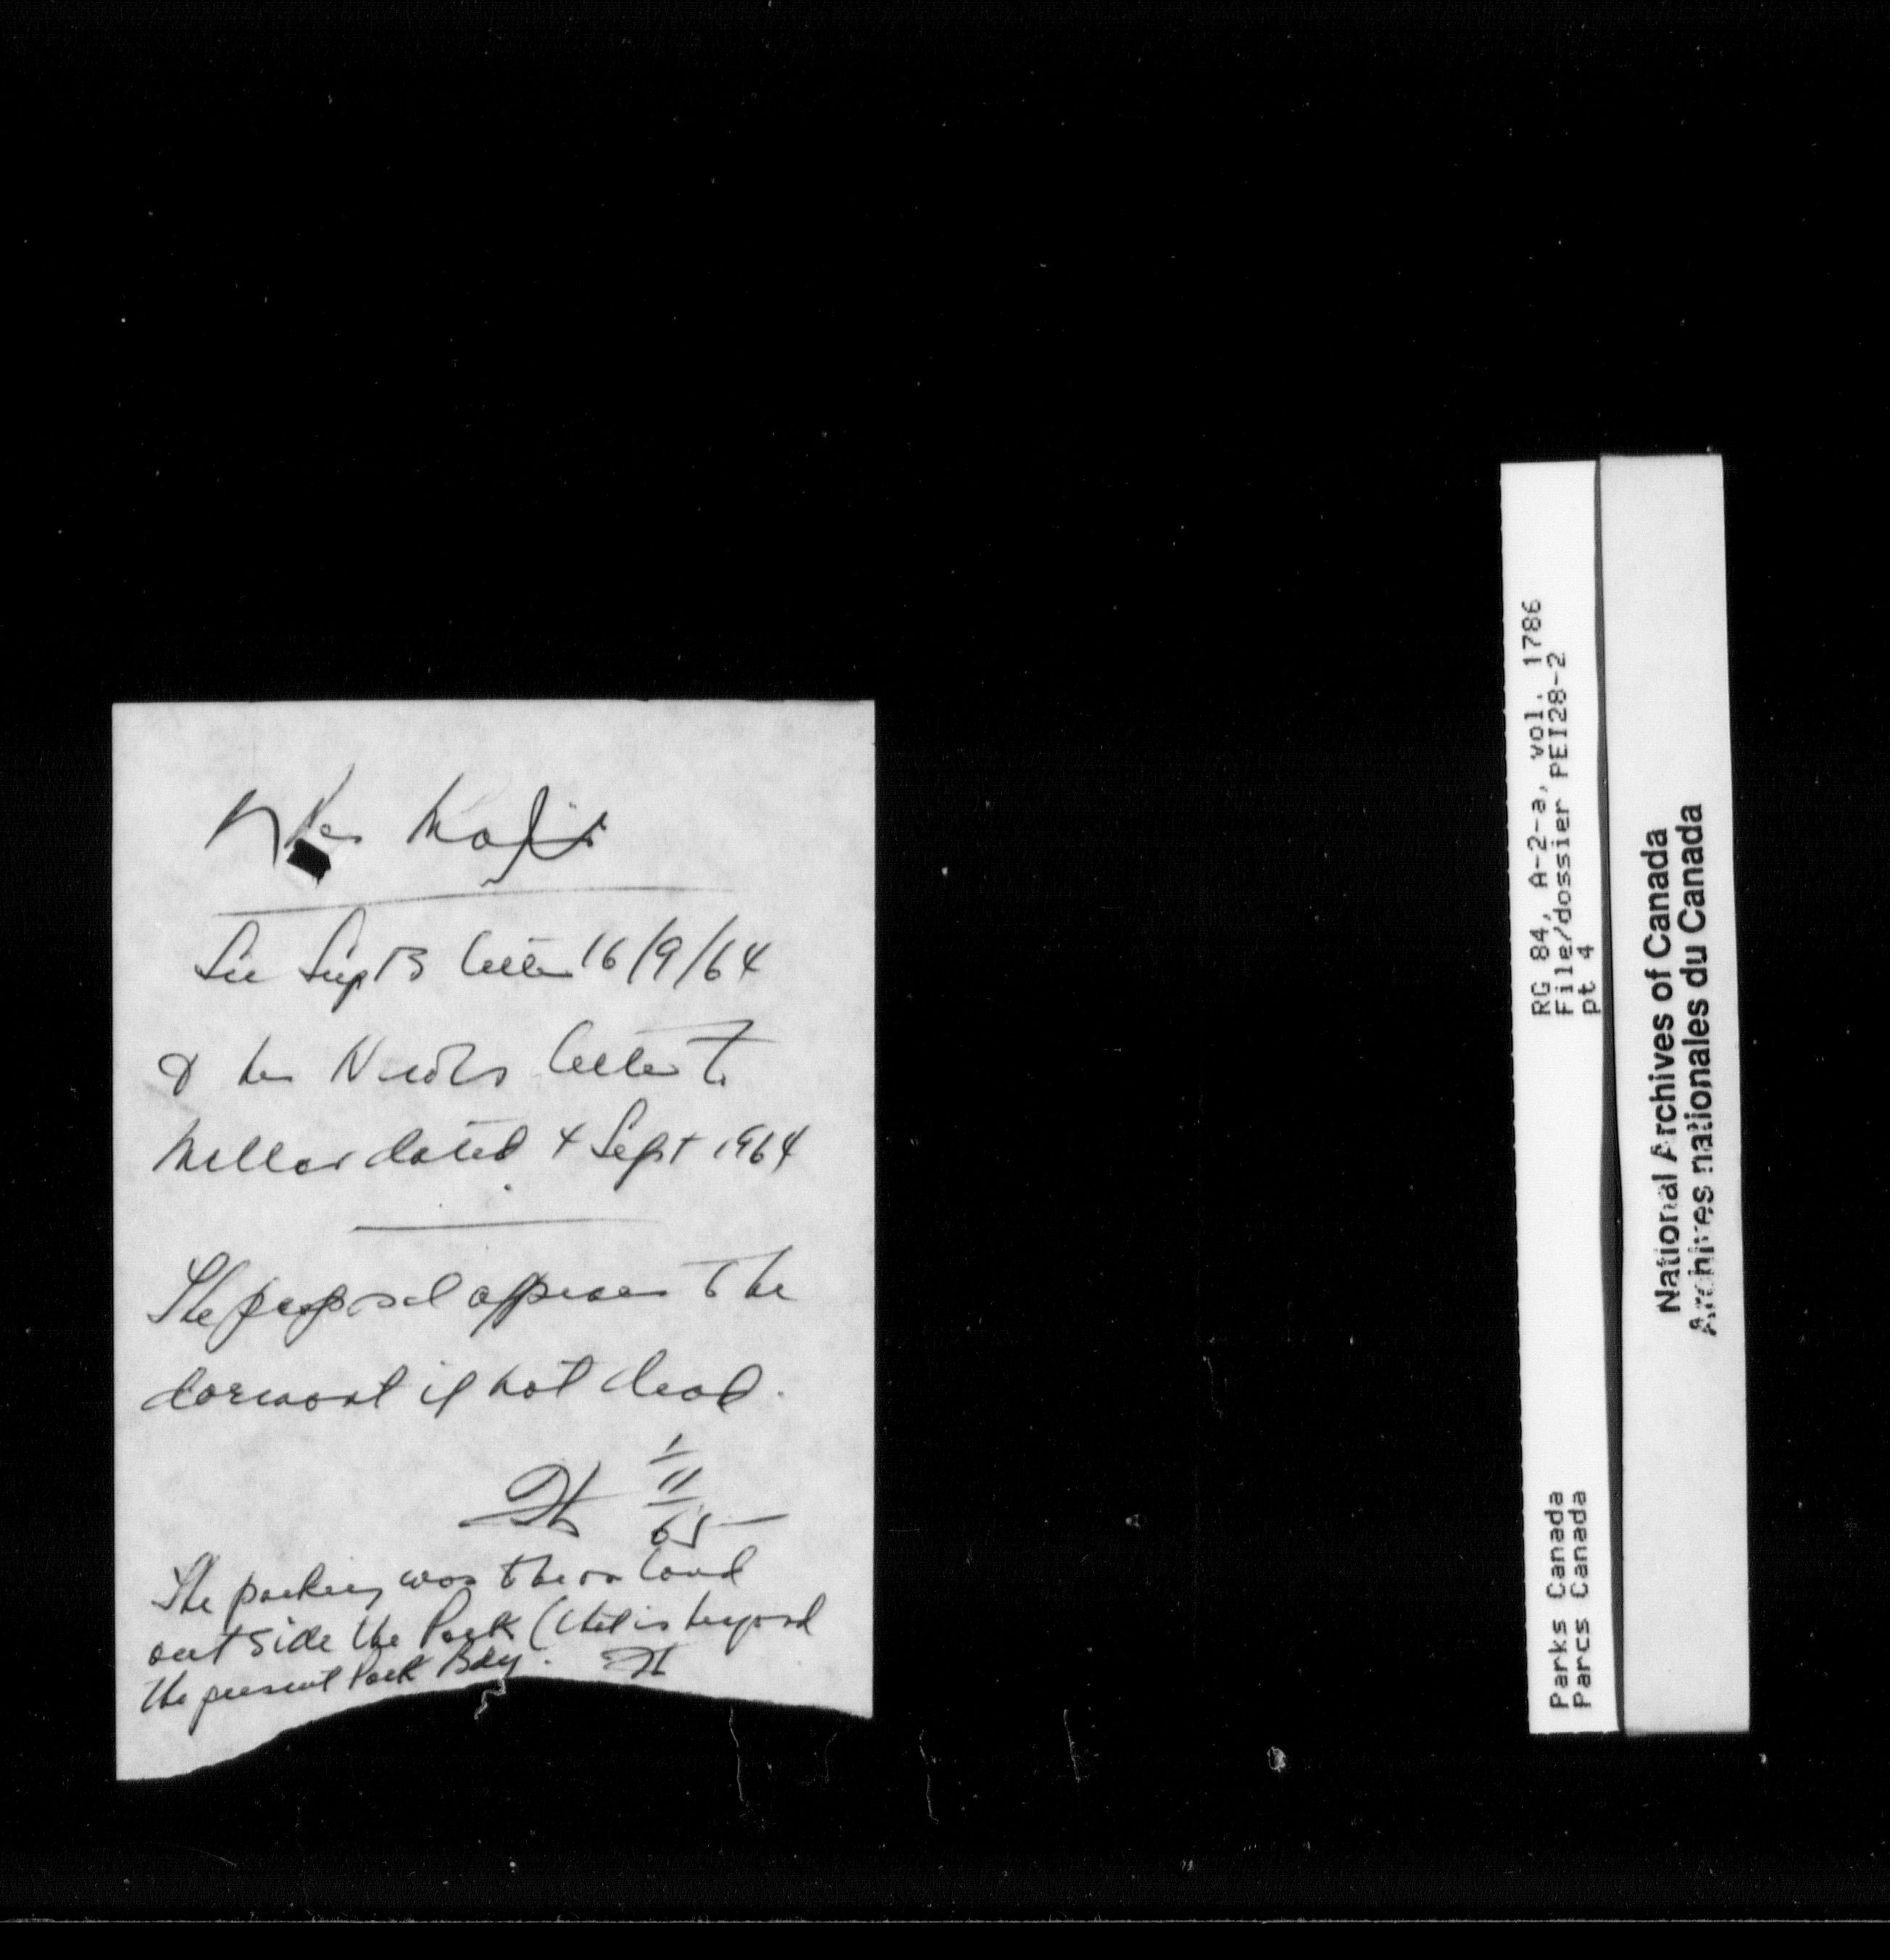 See Sup B letter 16/9/64
& letter to
Mellor dated 4 Sept 1964
The proposal appears to be
dormant if not dead.
1/11/65
The parking was to be on land
outside the Park (that is beyond
the present Park Bdy.
RG 84, A-2-a, vol. 1786
File/dossier PEI28-2
pt 4
Parks Canada
Parcs Canada
National Archives of Canada
Archives nationales du Canada